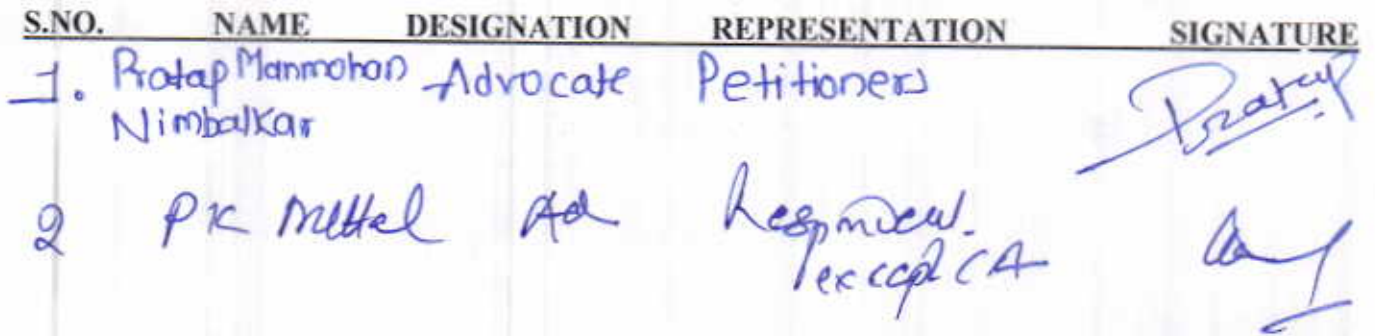 S.NO. NAME DESIGNATION REPRESENTATION SIGNATURE
1. Pratap Manmohan Advocate Petitioners Pratap
Nimbalkar
2 PK Mittal Ad Respondent.
except CA